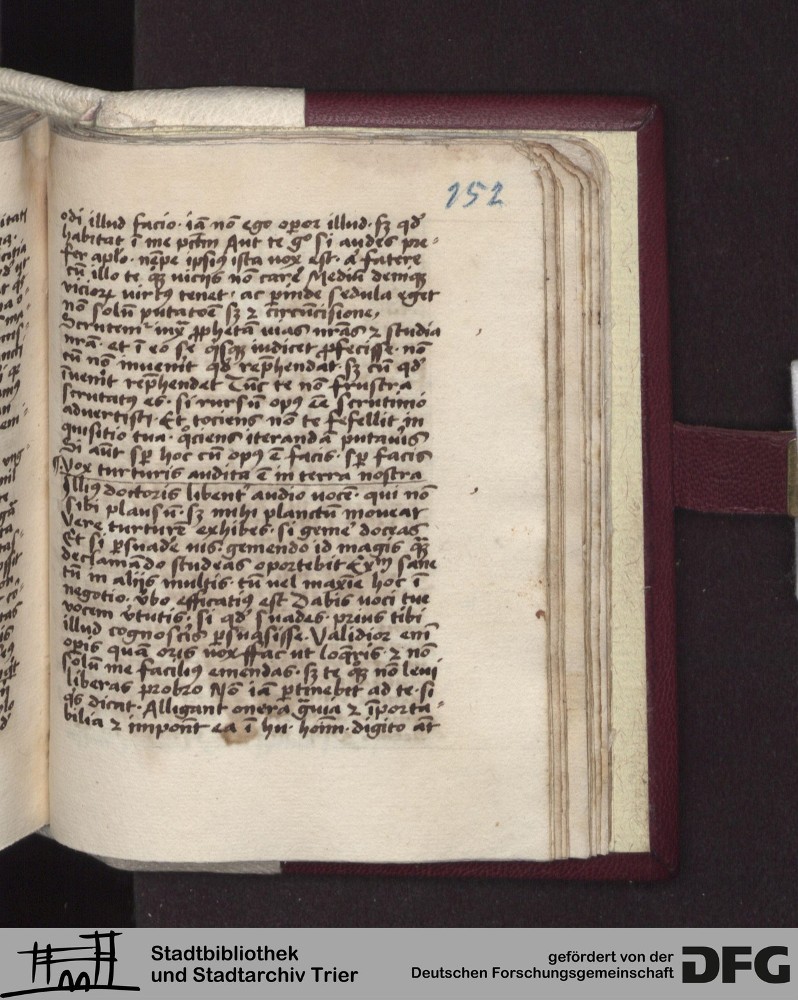 152
odi illud facio · iā nō ego oꝑor illud · sꝫ qd̓
habitat ī me pctm̄ Aut te gͦ si audes pre⸗
fer aplo · nēpe ipsiꝰ ista vox est · a fatere
cū illo te qꝫ vicijs nō carē Mediū deniqꝫ
vicioꝝ virtꝰ tenet · ac ꝓinde sedula eget
nō solū putatoē sꝫ ⁊ circūcisione,
Scrutem̓ iux ꝓphetā vias nr̄as ⁊ studia
nr̄a · et ī eo se qͥsqꝫ iudicet ꝓfecisse · nō
cū nō invenit qd̓ rep̄hendat · sꝫ cū qd̓
īvenit rep̄hendat Tūc te nō frustra
scrutatꝰ es · si rursū opꝰ eē scrutinio
advertisti · Et tociens nō te fefellit in
quisitio tua · qͦciens iterandā putavis
Si aūt sꝑ hoc cū opꝰ ē facis · sꝑ facis
Vox turturis audita ē in terra nostra
Illiꝰ doctoris libent̓ audio vocē · qui nō
sibi plausū · sꝫ mihi planctū moveat
Vere turturē exhibes · si gemē doceas
Et si ꝑsuadē vis · gemendo id magis qꝫ
declamādo studeas oportebit Exᵐ sane
cū in alijs multis · tū vel maxīe hoc ī
negotio · v̓bo efficatiꝰ est Dabis voci tue
vocem v̓tutis · si qd̓ suades · prius tibi
illud cognoscis ꝑsuasisse · Validior eni̅
opis quam oris vox ffac ut loqͣris · ⁊ nō
solū me faciliꝰ emendas · sꝫ te qꝫ nō levi
liberas probro Nō iā ꝑtinebit ad te · si
qͥs dicat · Alligant onera gͣvia ⁊ īporta⸗
bilia ⁊ imponūt ea ī hu · hoīm · digito aūt
Stadtbibliothek
und Stadtarchiv Trier
gefördert von der
Deutschen Forschungsgemeinschaft
DFG